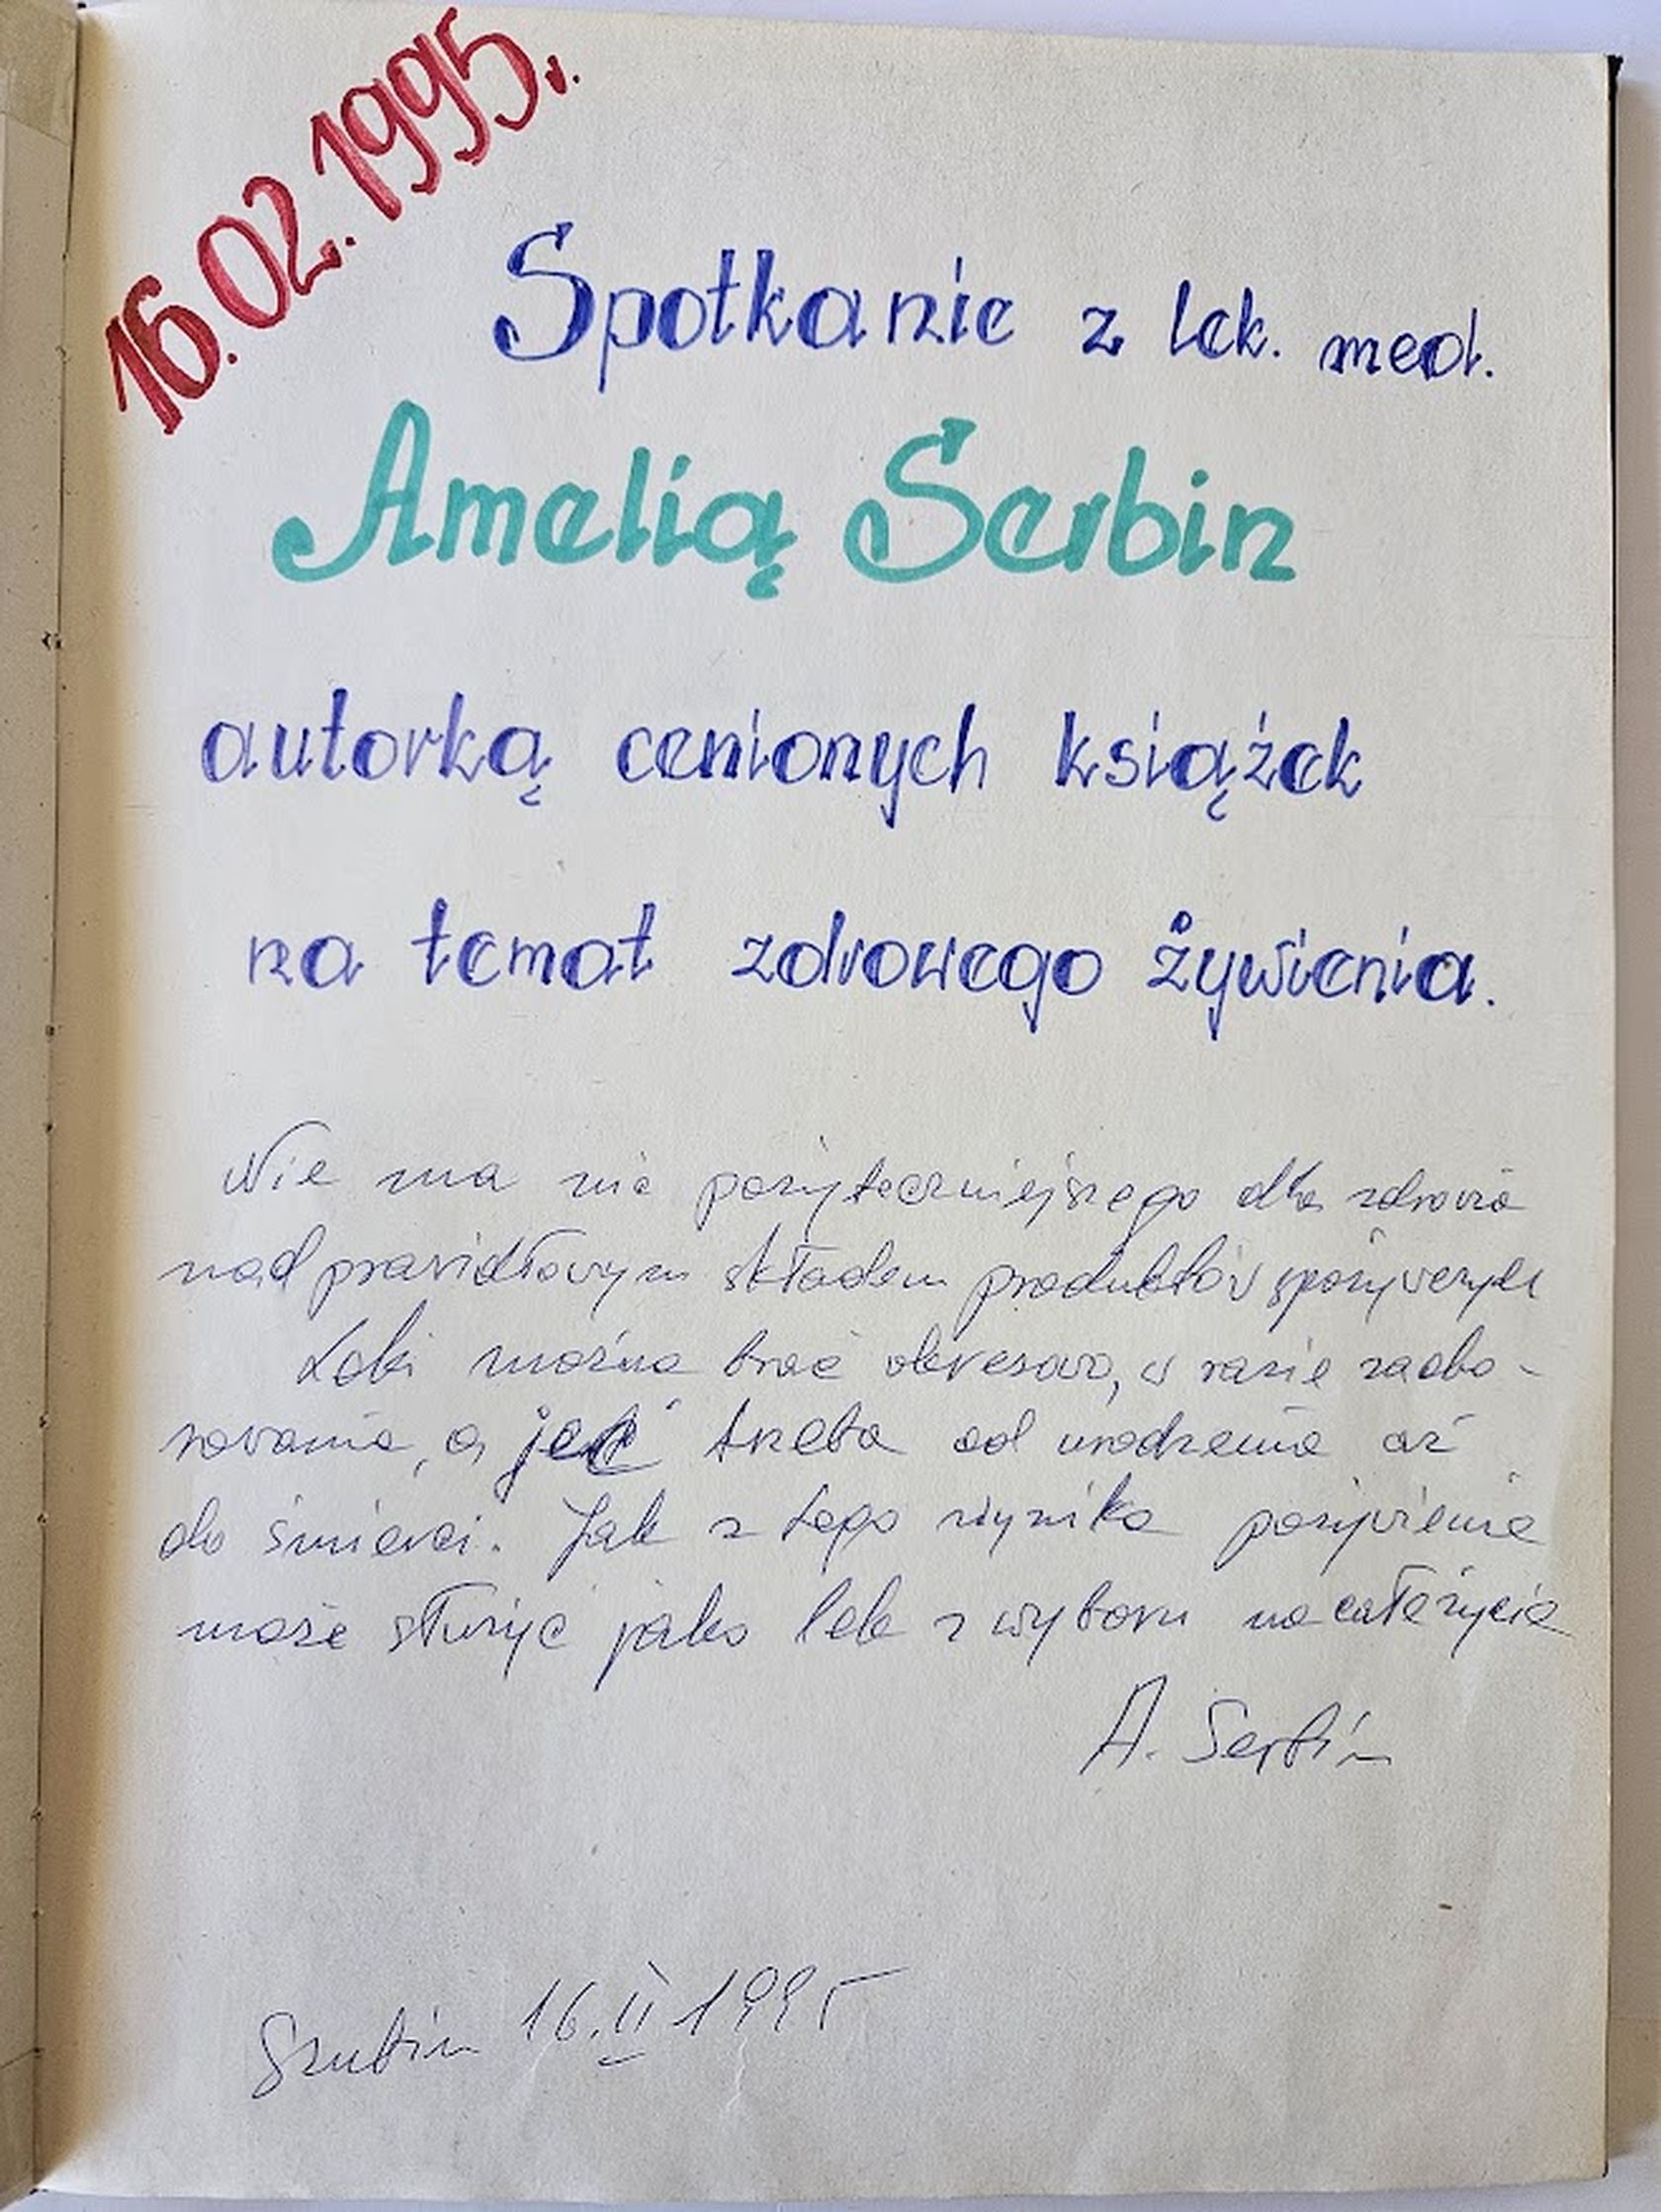 16.02.1995r.
Spotkanie z lek. med.
Amelią Serbin
autorką cenionych książek
na temat zdrowego żywienia.
Nie ma nic pożyteczniejszego dla zdrowia
nad prawidłowym składem produktów spożywczych
Leki można brać okresowo, w razie zacho-
rowania, a jeść trzeba od urodzenia aż
do śmierci. Jak z tego wynika pożywienie
może służyć jako lek z wyboru na całe życie
A. Serbin
Szubin 16.II 1995